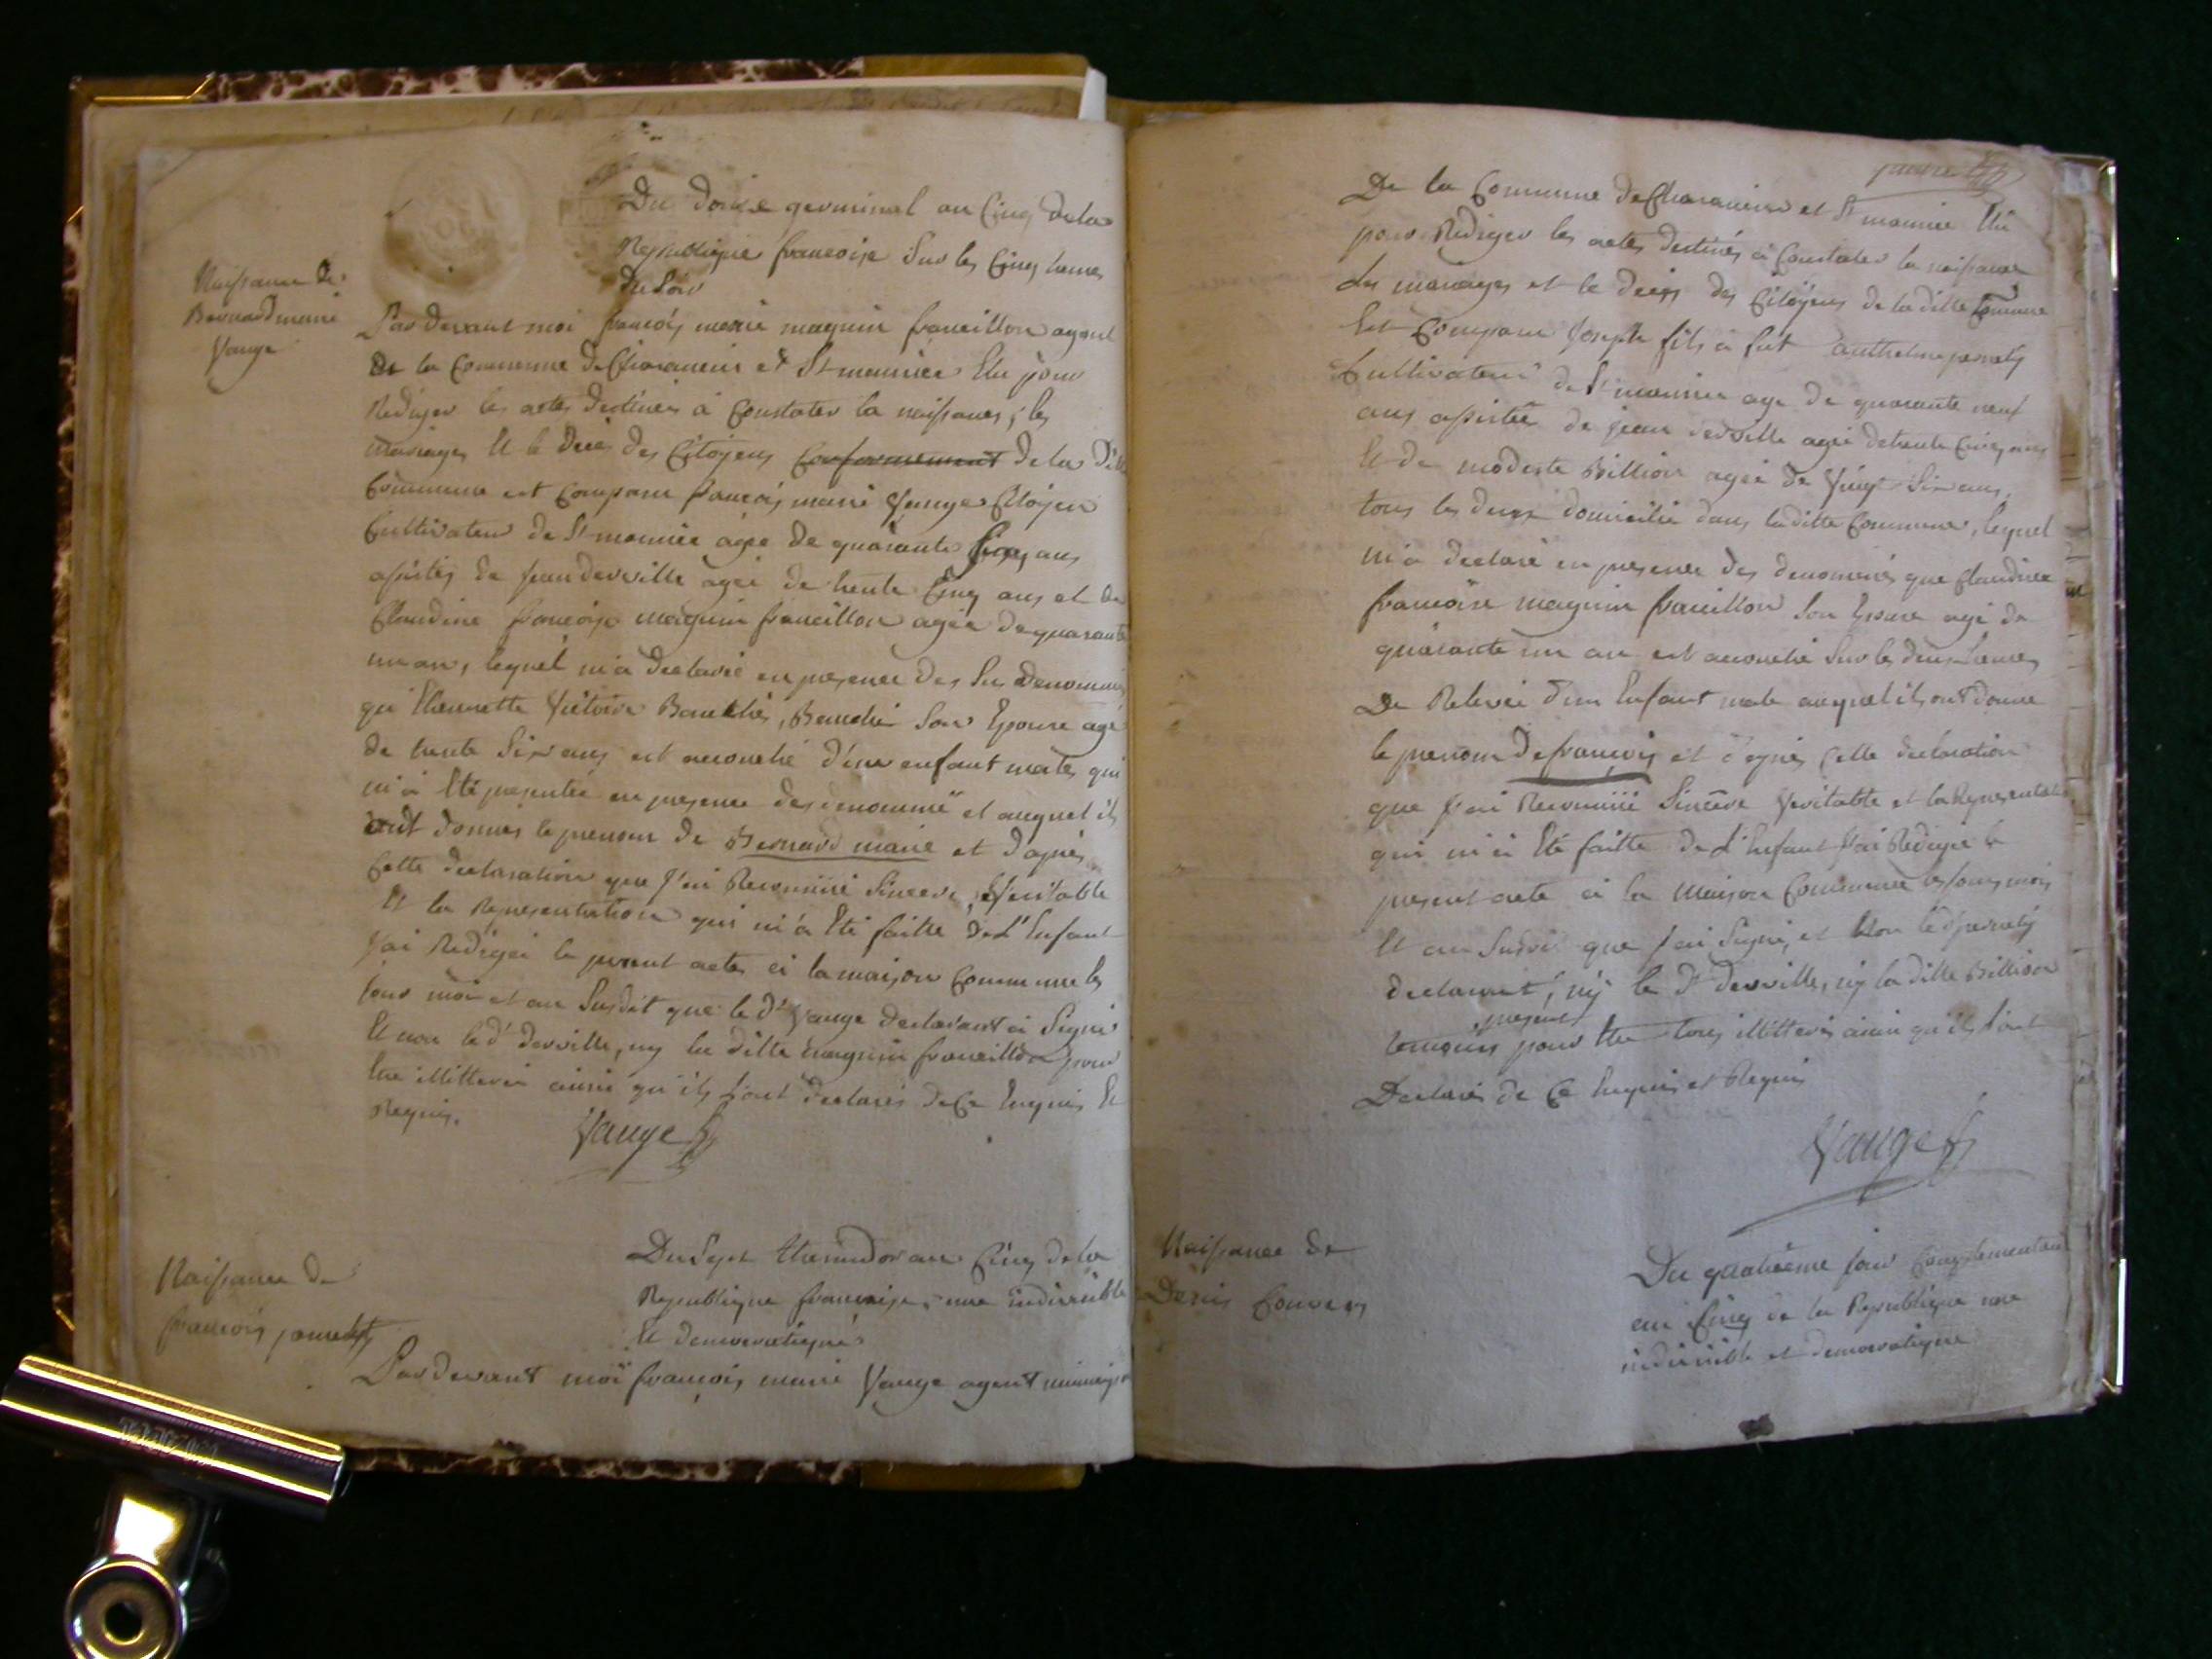 Du douze germinal an Cinq de la
Republique francoise Sur les Cinq heures
du Soir
Naissance de
Bernard marie
Vauge
Par devant moi francois marie magnin francillon agent
De la Commune de Charancin et St maurice Elu pour
Rediger les actes destinés à Constater la naissances, les
mariages Et le Deces des Citoyens Conformement de la Ditte
Commune est Comparu francois marie Vauge Citoyen
Cultivateur de St maurice agée de quarante Cinq ans
assistés de Jean derville agée de trente Cinq ans et de
Claudine francoise magnin francillon agée de quarante
un ans, lequel m'a declaré en presence des Sus denommés
que Victoire son Epouse agé
de trente Six ans est accouché d'une enfant male, qui
m'a Eté presentée en presence des denommé et auquel ils
ont donnés le prenom de Bernard marie et d'après
Cette declaration que J'ai Reconnüe Sincere, Veritable
Et la Representation qui m'a Eté faitte De L'Enfant
J'ai Redigée le present acte à la maison Commune les
Jour mois et an Susdit que le dt Vauge declarant à Signé
Et non le dt derville, ny la ditte magnin francillon pour
Etre illitteré ainsi qu'ils sont declarés de Ce Enquis Et
Requis.
Vauge
Naissance de
francois
Du Sept thermidor an Cinq de la
Republique francoise, une indivisible
Et democratique
Par devant moi francois marie Vauge agent municipal
De la Commune de Charancin et St maurice Elu
pour Rediger les actes destinés à Constater la naissance
des mariages et le deces des Citöyens de la ditte Commune
Est Comparu Joseph fils à fut anthelme
Cultivateur de St maurice age de quarante neuf
ans assistée de jean derville agée de trente Cinq ans
Et de modeste Billion agée de Vingt Six ans,
tous les deux domicilié dans la ditte Commune, lequel
m'a declaré en presence des denommés que Claudine
francoise magnin francillon Son Epouse agé de
quarante un an est accouché Sur les deux heures
De Relevée d'un Enfant male auquel ils ont donne
le prenom de francois et d'après Cette declaration
que J'ai Reconnüe Sincere Veritable et la Representation
qui m'a Eté faitte de L'Enfant J'ai Redigée le
present acte à la Maison Commune les Jour, mois
Et an Susdit que J'ai Signé, et Non le dt
declarant, ny le dt derville, ny la ditte Billion
presens
temoins pour Etre tous illitterés ainsi qu'ils sont
Declarés de Ce Enquis et Requis
Vauge
Naissance de
Denis Convers
Du quatrième jour Complementaire
an Cinq de la Republique une
indivisible et democratique